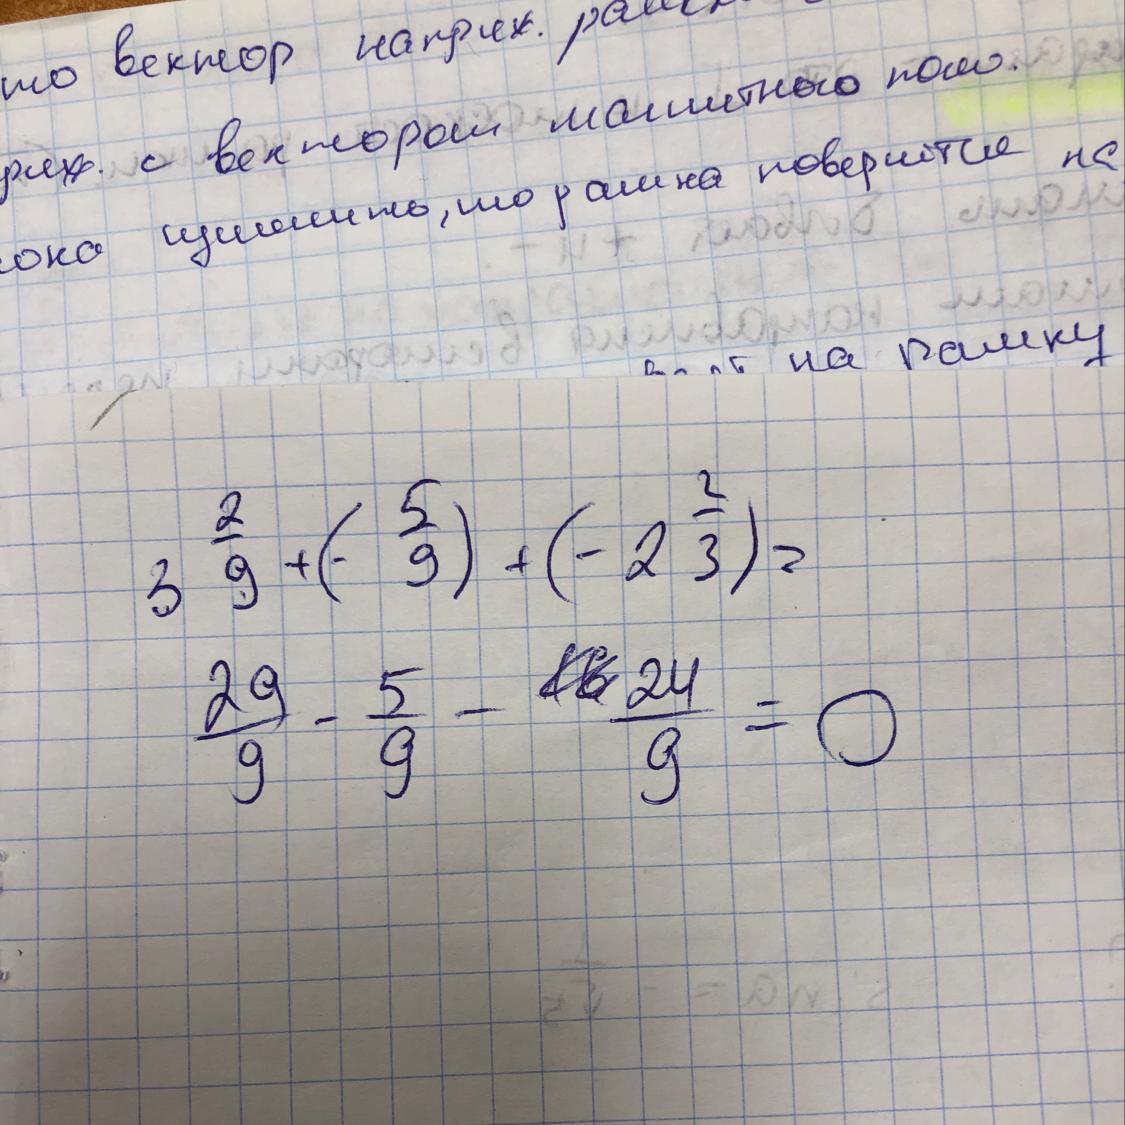 то вектор напряж.
ряж. с вектором магнитного поля.
тока изменить, то рамка повернется на
на рамку
3 2/9 + (- 5/9) + (- 2 2/3) =
29/9 - 5/9 - 24/9 = 0